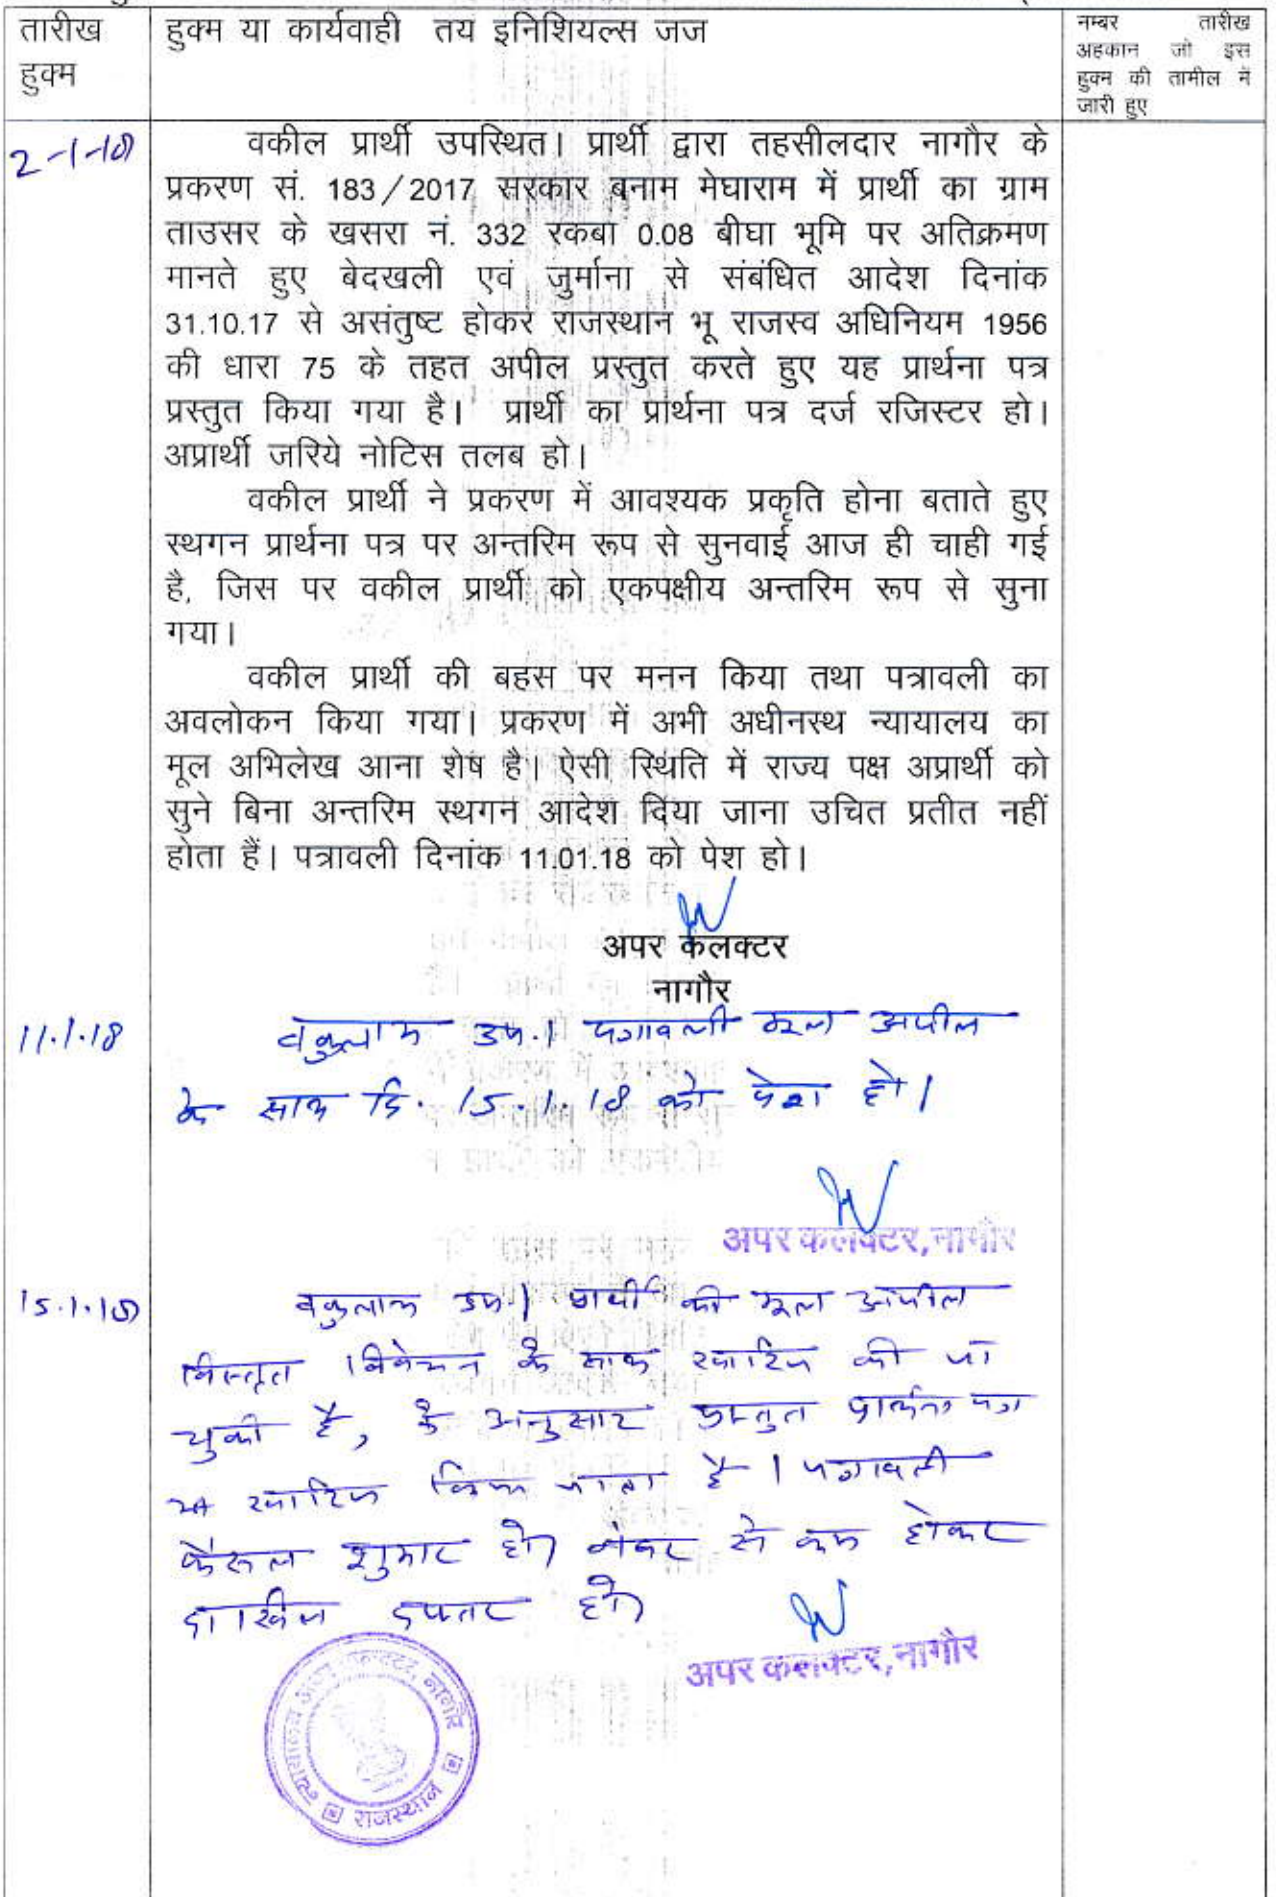 तारीख हुक्म या कार्यवाही तय इनिशियल्स जज नम्बर तारीख
हुक्म अहकान जो इस
हुक्म की तामील में
जारी हुए
2-1-18 वकील प्रार्थी उपस्थित। प्रार्थी द्वारा तहसीलदार नागौर के
प्रकरण सं. 183/2017 सरकार बनाम मेघाराम में प्रार्थी का ग्राम
ताउसर के खसरा नं. 332 रकबा 0.08 बीघा भूमि पर अतिक्रमण
मानते हुए बेदखली एवं जुर्माना से संबंधित आदेश दिनांक
31.10.17 से असंतुष्ट होकर राजस्थान भू राजस्व अधिनियम 1956
की धारा 75 के तहत अपील प्रस्तुत करते हुए यह प्रार्थना पत्र
प्रस्तुत किया गया है। प्रार्थी का प्रार्थना पत्र दर्ज रजिस्टर हो।
अप्रार्थी जरिये नोटिस तलब हो।
वकील प्रार्थी ने प्रकरण में आवश्यक प्रकृति होना बताते हुए
स्थगन प्रार्थना पत्र पर अन्तरिम रूप से सुनवाई आज ही चाही गई
है, जिस पर वकील प्रार्थी को एकपक्षीय अन्तरिम रूप से सुना
गया।
वकील प्रार्थी की बहस पर मनन किया तथा पत्रावली का
अवलोकन किया गया। प्रकरण में अभी अधीनस्थ न्यायालय का
मूल अभिलेख आना शेष है। ऐसी स्थिति में राज्य पक्ष अप्रार्थी को
सुने बिना अन्तरिम स्थगन आदेश दिया जाना उचित प्रतीत नहीं
होता हैं। पत्रावली दिनांक 11.01.18 को पेश हो।
अपर कलक्टर
नागौर
11.1.18 वकुलाय उप.। पत्रावली मूल अपील
के साथ दि. 15.1.18 को पेश हो।
अपर कलक्टर, नागौर
15.1.18 वकुलाय उप.। प्रार्थी की मूल अपील
विस्तृत विवेचन के साथ खारिज की जा
चुकी है, के अनुसार प्रस्तुत प्रार्थना पत्र
खारिज किया जाता है। पत्रावली
फैसल शुमार हो नंबर से कम होकर
दाखिल दफ्तर हो।
अपर कलक्टर, नागौर
न्यायालय अपर कलक्टर, नागौर
राजस्थान